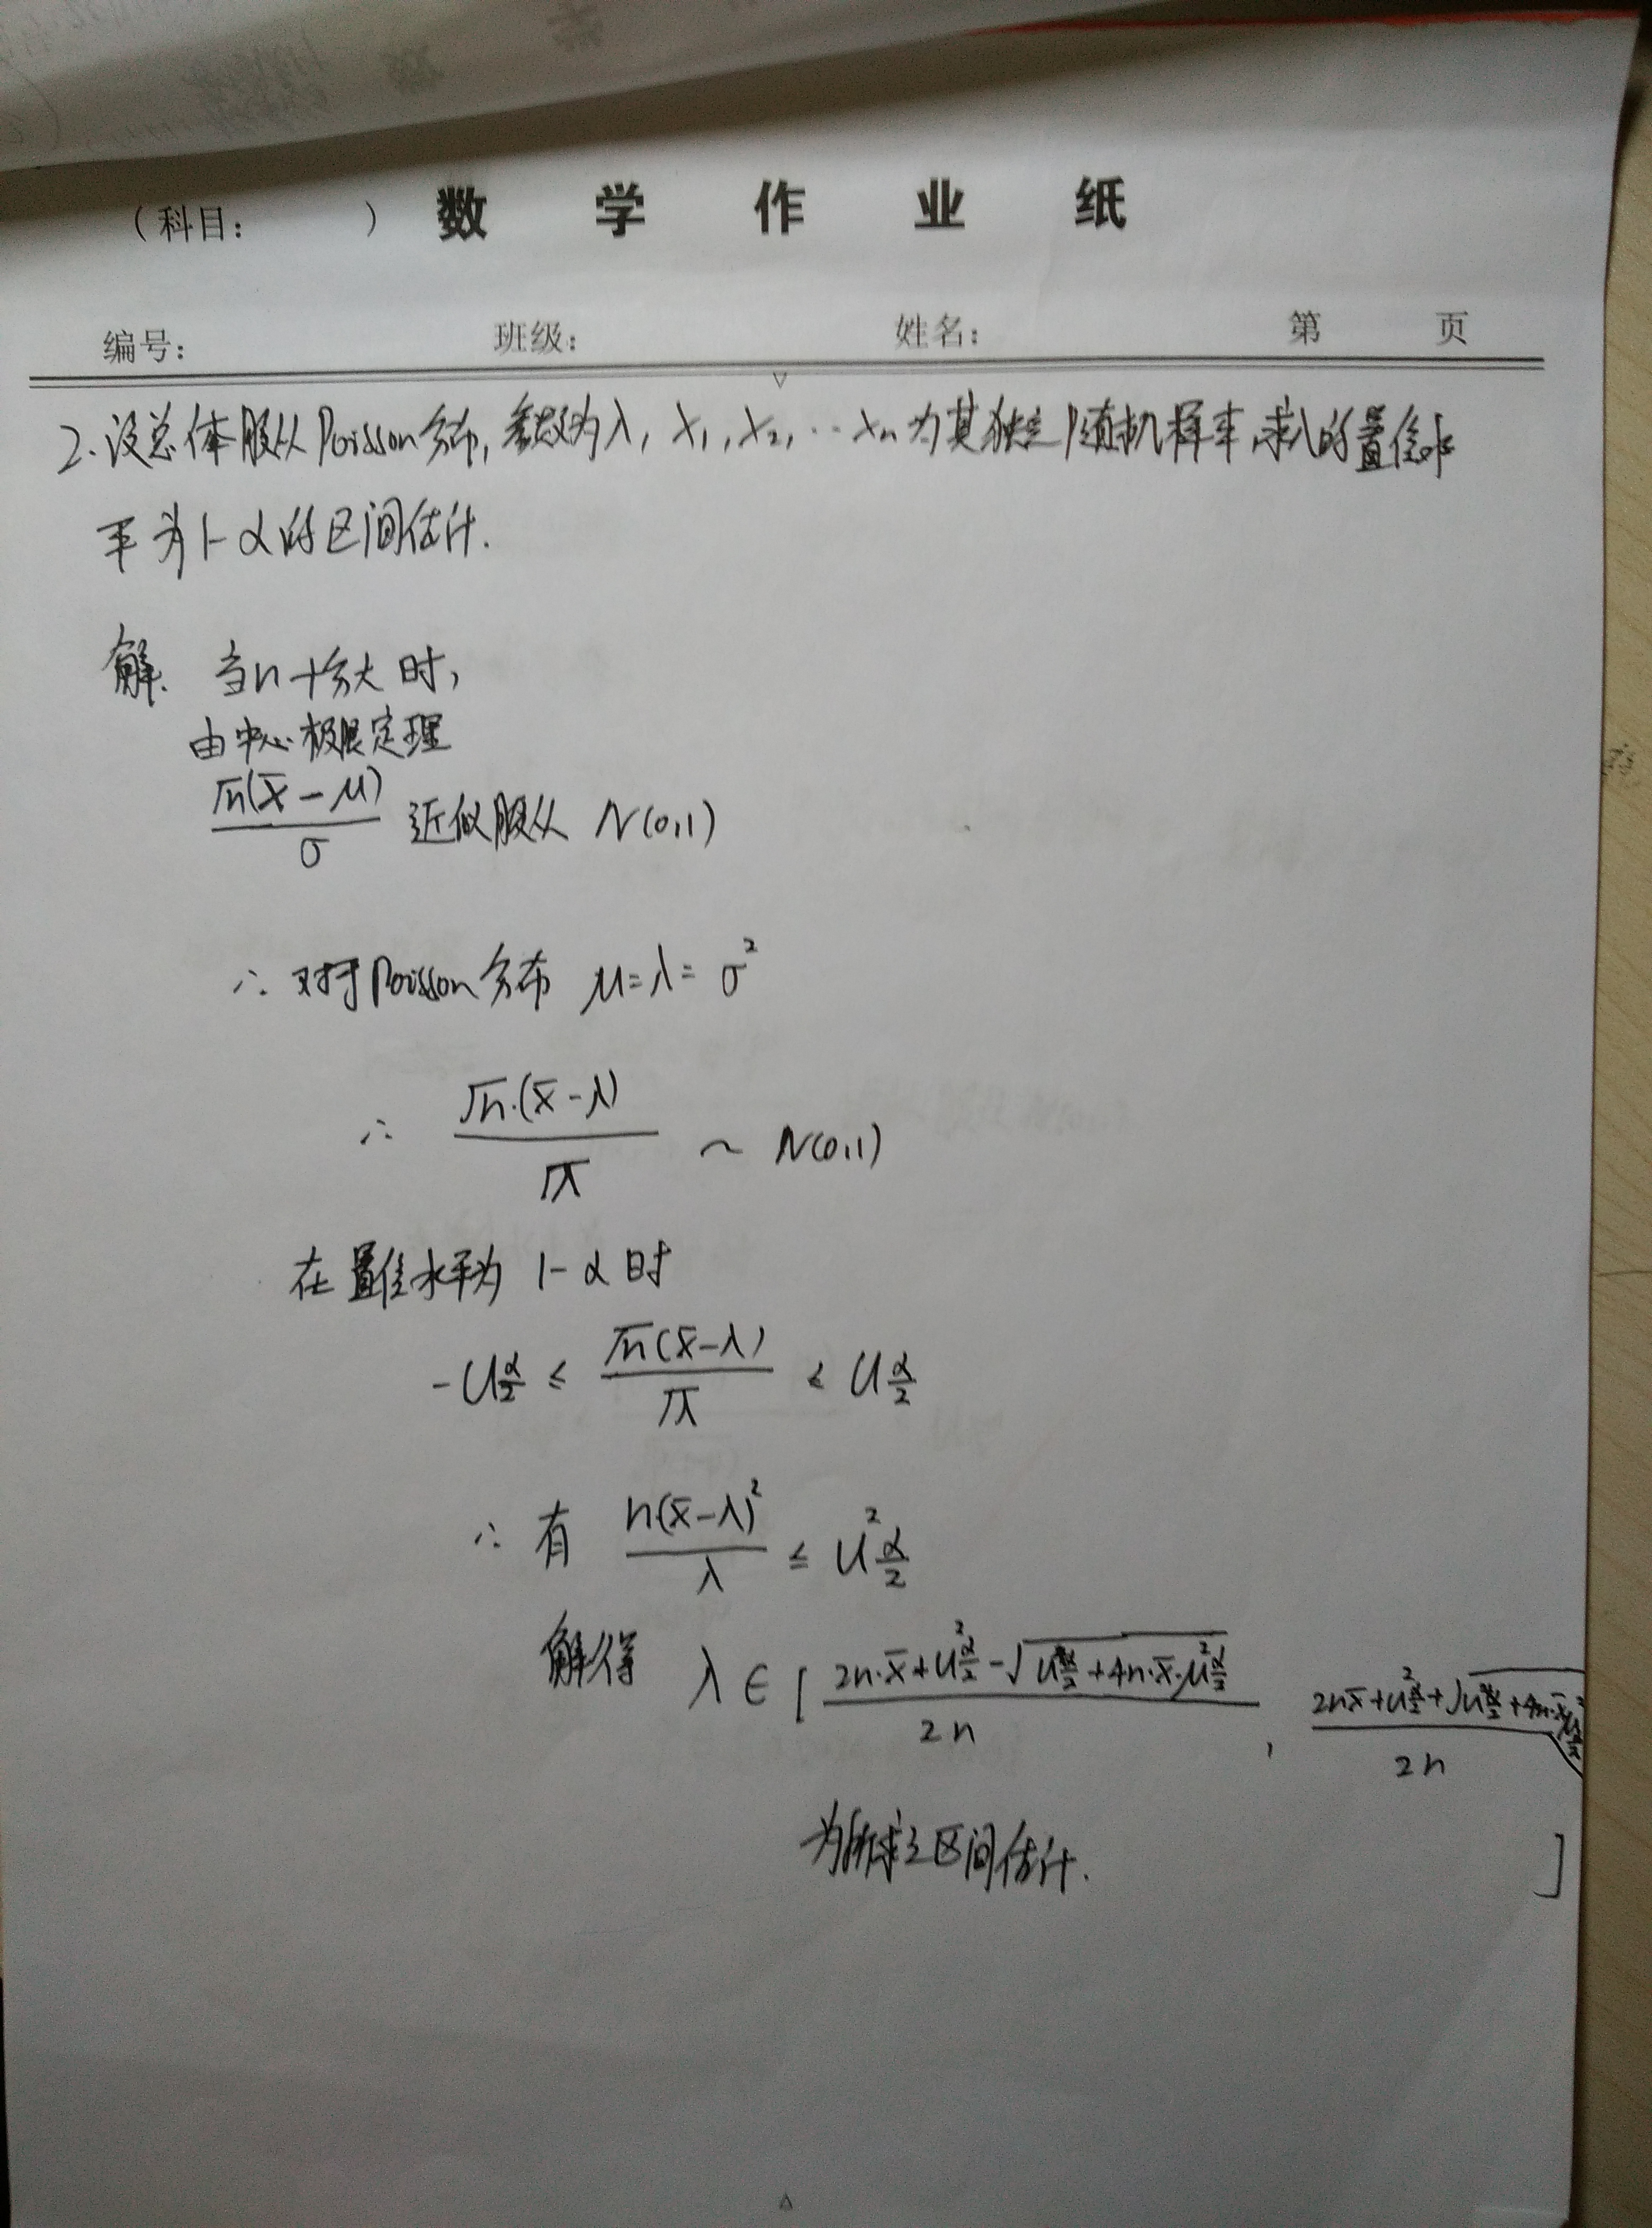 （科目：　　　） 数学作业纸
编号：　　班级：　　姓名：　　第　　页
2.设总体服从Poisson分布,参数为λ, X₁,X₂,…Xn为其独立随机样本,求λ的置信水
平为1-α的区间估计.
解. 当n十分大时,
由中心极限定理
√n(x̄-μ)/σ 近似服从 N(0,1)
∴ 对于Poisson分布 μ=λ=σ²
∴ √n·(x̄-λ)/√λ ~ N(0,1)
在置信水平为 1-α时
-U_{α/2} ≤ √n(x̄-λ)/√λ ≤ U_{α/2}
∴ 有 n(x̄-λ)²/λ ≤ U²_{α/2}
解得 λ∈[ (2n·x̄+U²_{α/2}-√(U⁴_{α/2}+4n·x̄·μ²_{α/2}))/2n , (2nx̄+U²_{α/2}+√(U⁴_{α/2}+4n·x̄μ²_{α/2}))/2n ]
为所求之区间估计.